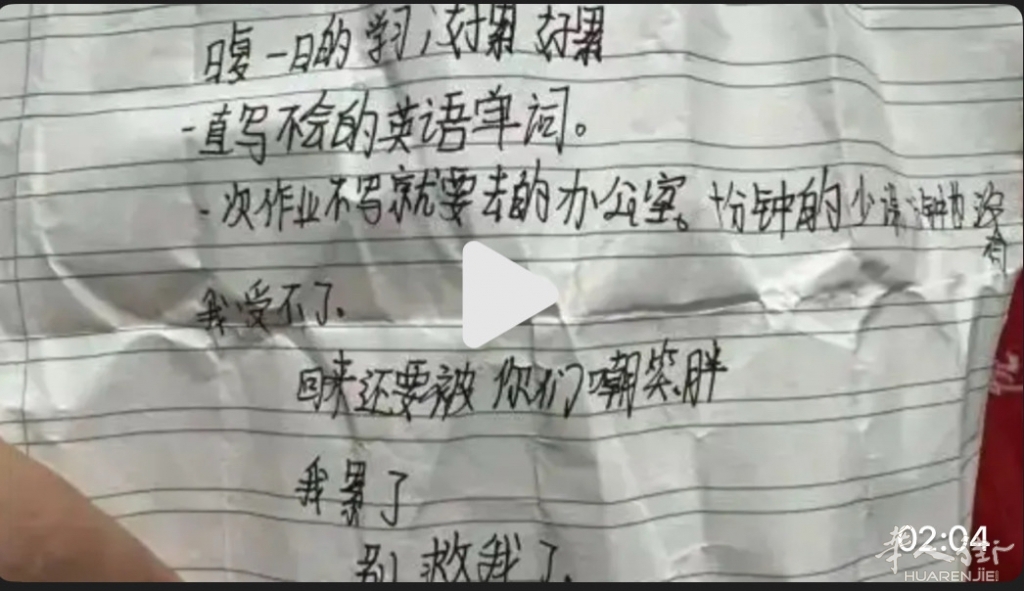 日复一日的学习,好累 好累
一直写不会的英语单词。
一次作业不写就要去的办公室。十分钟的少
有
我受不了.
回来还要被你们嘲笑胖
我累了
别救我了.
02:04
华人街
HUARENJIE